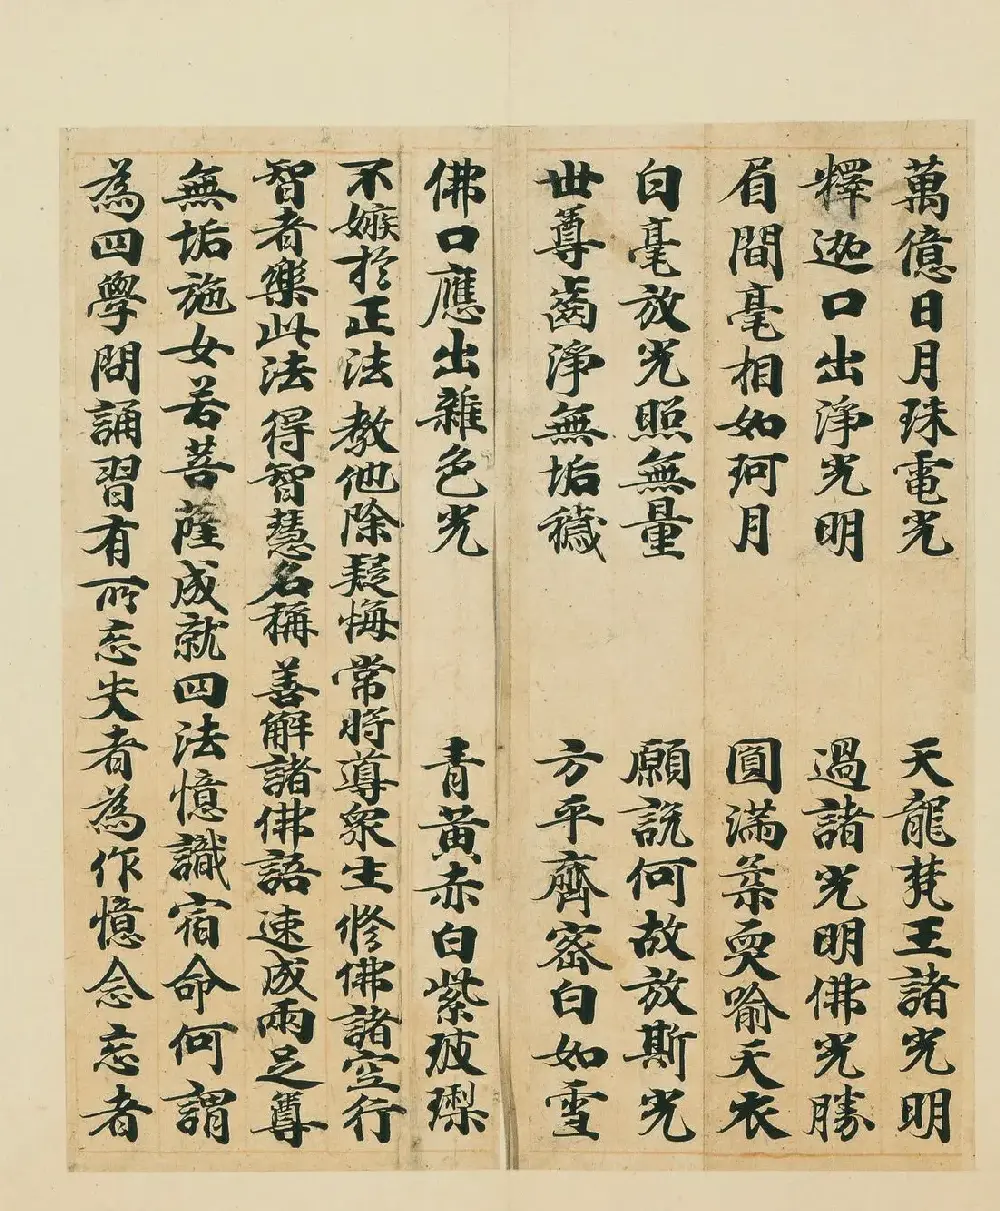 萬億日月珠電光 天龍梵王諸光明
釋迦口出淨光明 過諸光明佛光勝
眉間毫相如珂月 圓滿柔耎喻天衣
白毫放光照無量 願說何故放斯光
世尊齒淨無垢穢 方平齊密白如雪
佛口應出雜色光 青黃赤白紫玻瓈
不嫉於正法 教他除疑悔 常將導衆生 修佛諸空行
智者樂此法 得智慧名稱 善解諸佛語 速成兩足尊
無垢施女若菩薩成就四法憶識宿命何謂
為四學問誦習有所忘失者為作憶念忘者